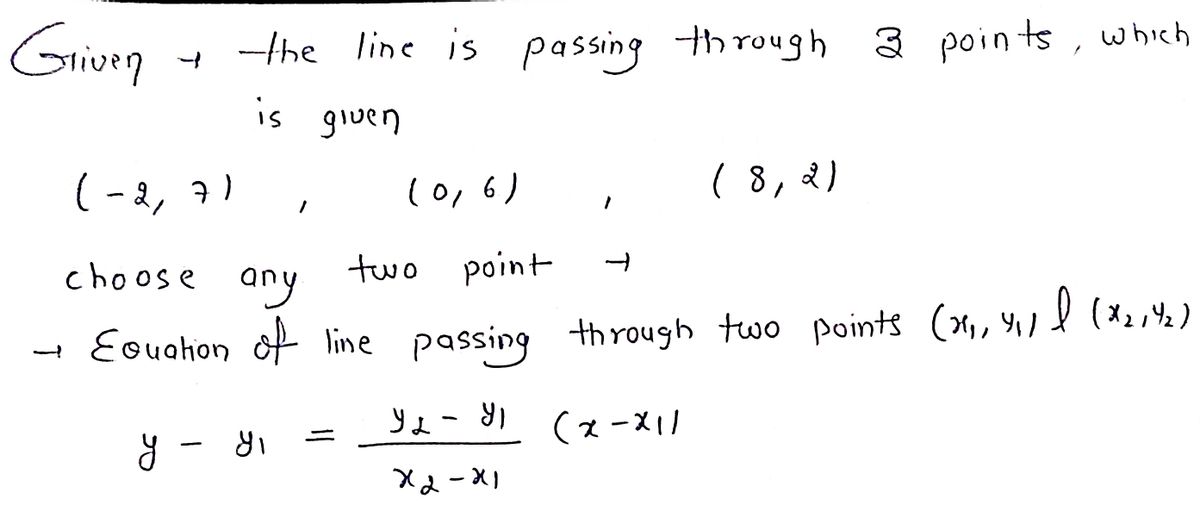 Given → the line is passing through 3 points, which
is given
(-2, 7) , (0, 6) , (8, 2)
choose any two point →
→ Equation of line passing through two points (x₁, y₁) & (x₂, y₂)
y - y₁ = \frac{y₂ - y₁}{x₂ - x₁} (x - x₁)